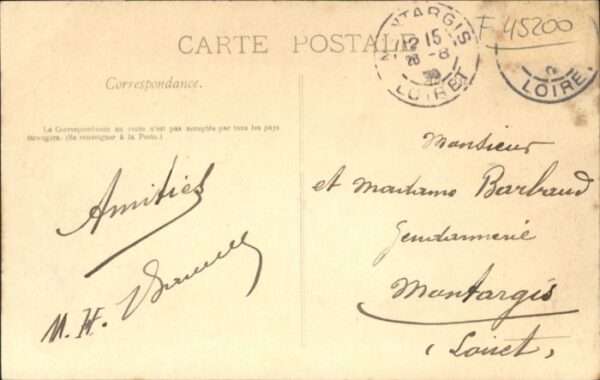 CARTE POSTALE
Correspondance.
La Correspondance au recto n'est pas acceptée par tous les pays
étrangers. (Se renseigner à la Poste.)
Amitiés
M. H.
MONTARGIS
12 15
28 -8
LOIRET
F 45200
LOIRET
Monsieur
et Madame Barbaud
Gendarmerie
Montargis
(Loiret)